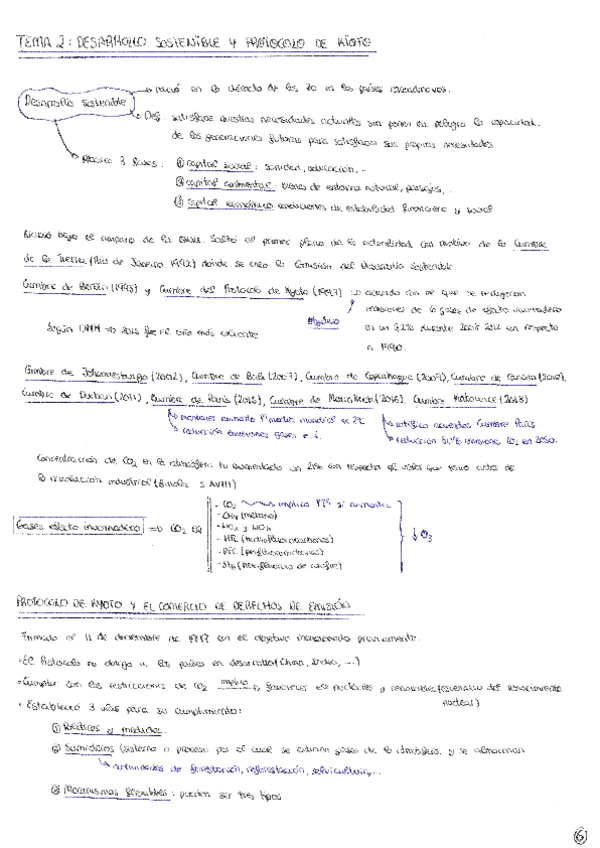 TEMA 2: DESARROLLO SOSTENIBLE Y PROTOCOLO DE KIOTO
Desarrollo sostenible
Nació en la década de los 70 en los países escandinavos.
Def. satisfacer nuestras necesidades actuales sin poner en peligro la capacidad
de las generaciones futuras para satisfacer sus propias necesidades
3 bases: ① capital social: sanidad, educación, ..
② capital ambiental: bienes de entorno natural, paisajes, ..
③ capital económico: condiciones de estabilidad financiera y social
Nació bajo el amparo de la ONU. Saltó al primer plano de la actualidad con motivo de la Cumbre
de la Tierra (Río de Janeiro, 1992) donde se creó la Comisión del Desarrollo sostenible.
Cumbre de Berlín (1995) y Cumbre del Protocolo de Kyoto (1997) → acuerdo con el que se
Objetivo
emisiones de los gases de efecto invernadero
en un 5,2% durante 2008-2012 con respecto
a 1990.
Según OMM ⇒ 2016 fue el año más caliente
Cumbre de Johannesburgo (2002), Cumbre de Bali (2007), Cumbre de Copenhague (2009), Cumbre de Cancún (2010),
Cumbre de Durban (2011), Cumbre de París (2015), Cumbre de Marrakech (2016), Cumbre Katowice (2018)
mantener aumento Tª media mundial ≤ 2ºC
reducción emisiones gases e.i.
ratifica acuerdos Cumbre París
reducción 50% emisiones CO2 en 2050.
Concentración de CO2 en la atmósfera ha aumentado un 21% con respecto al valor que tenía antes de
la revolución industrial
Gases efecto invernadero ⇒ CO2 eq
- CO2 implica ↑Tª si aumenta
- CH4 (metano)
- NOx y
- HFC (hidrofluorocarbonos)
- PFC (perfluorocarbonos)
- SF6 (hexafluoruro de azufre)
↓ O3
PROTOCOLO DE KYOTO Y EL COMERCIO DE DERECHOS DE EMISIÓN
Firmado el 11 de diciembre de 1997 con el objetivo mencionado previamente.
· El Protocolo no obliga a los países en desarrollo (China, India, ...)
· Cumplir con las restricciones de CO2 implica → favorecer en. nucleares y renovables (escenario del renacimiento
nuclear)
· Estableció 3 vías para su cumplimiento:
① Políticas y medidas.
② Sumideros (sistema o proceso por el cual se extraen gases de la atmósfera y se almacenan
↳ actividades de forestación, reforestación, selvicultura, ...
③ Mecanismos flexibles: pueden ser tres tipos
6